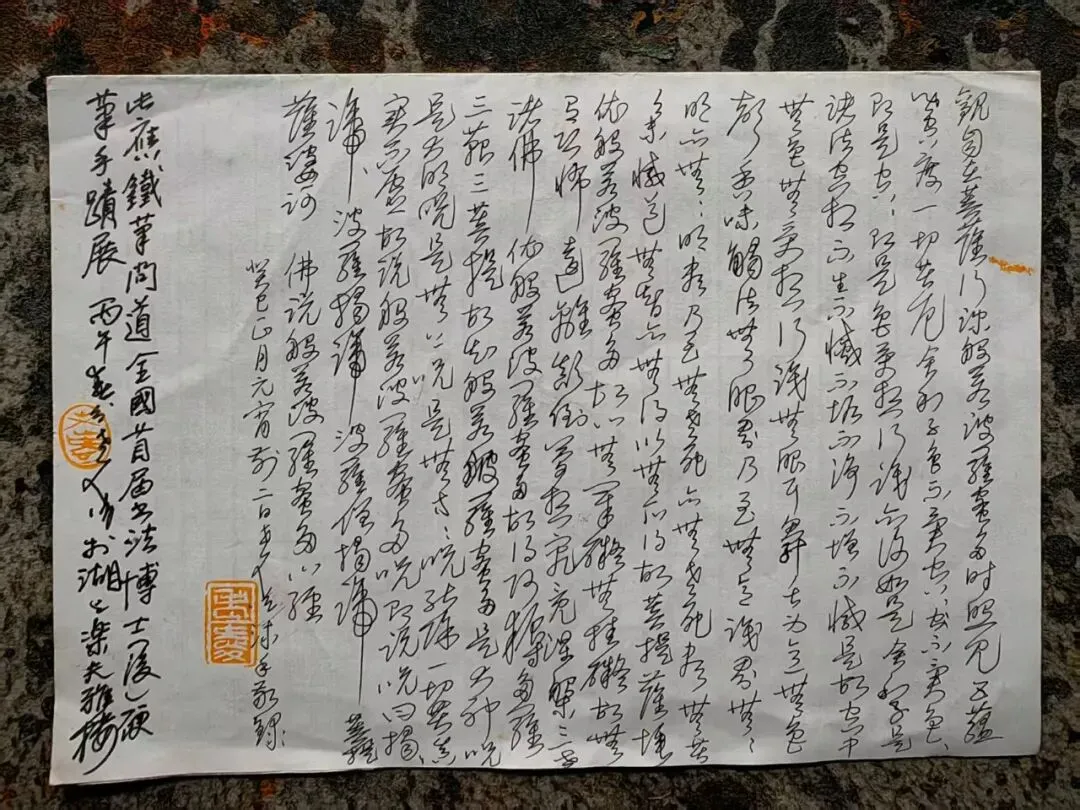 觀自在菩薩行深般若波羅蜜多時照見五蘊
皆空度一切苦厄舍利子色不異空、不異色、
即是空、即是色受想行識亦復如是舍利子是
諸法空相不生不滅不垢不淨不增不減是故空中
無色無受想行識無眼耳鼻舌身意無色
聲香味觸法無眼界乃至無意識界無、
明亦無、明盡乃至無老死亦無老死盡無苦
集滅道無智亦無得以無所得故菩提薩埵
依般若波羅蜜多故心無罣礙無罣礙故無
有恐怖遠離顛倒夢想究竟涅槃三世
諸佛依般若波羅蜜多故得阿耨多羅
三藐三菩提故知般若波羅蜜多是大神咒
是大明咒是無上咒是無等、咒能除一切苦真
實不虛故說般若波羅蜜多咒即說咒曰揭、
諦、波羅揭諦波羅僧揭諦菩提
薩婆訶 佛說般若波羅蜜多心經
癸巳正月元宵前二日敬錄
此應鐵筆問道全國首届书法博士(後)硬
筆手蹟展丙午春於湖上樂天雅樓